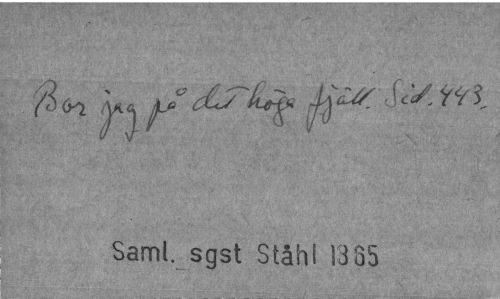 Bor jag på det höga fjäll. Sid. 443.
Saml. sgst Ståhl 1365